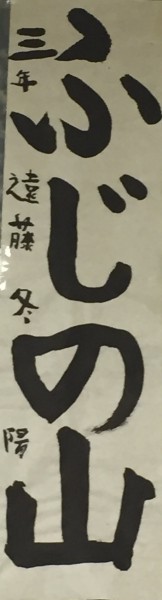 ふじの山
三年 遠藤冬陽